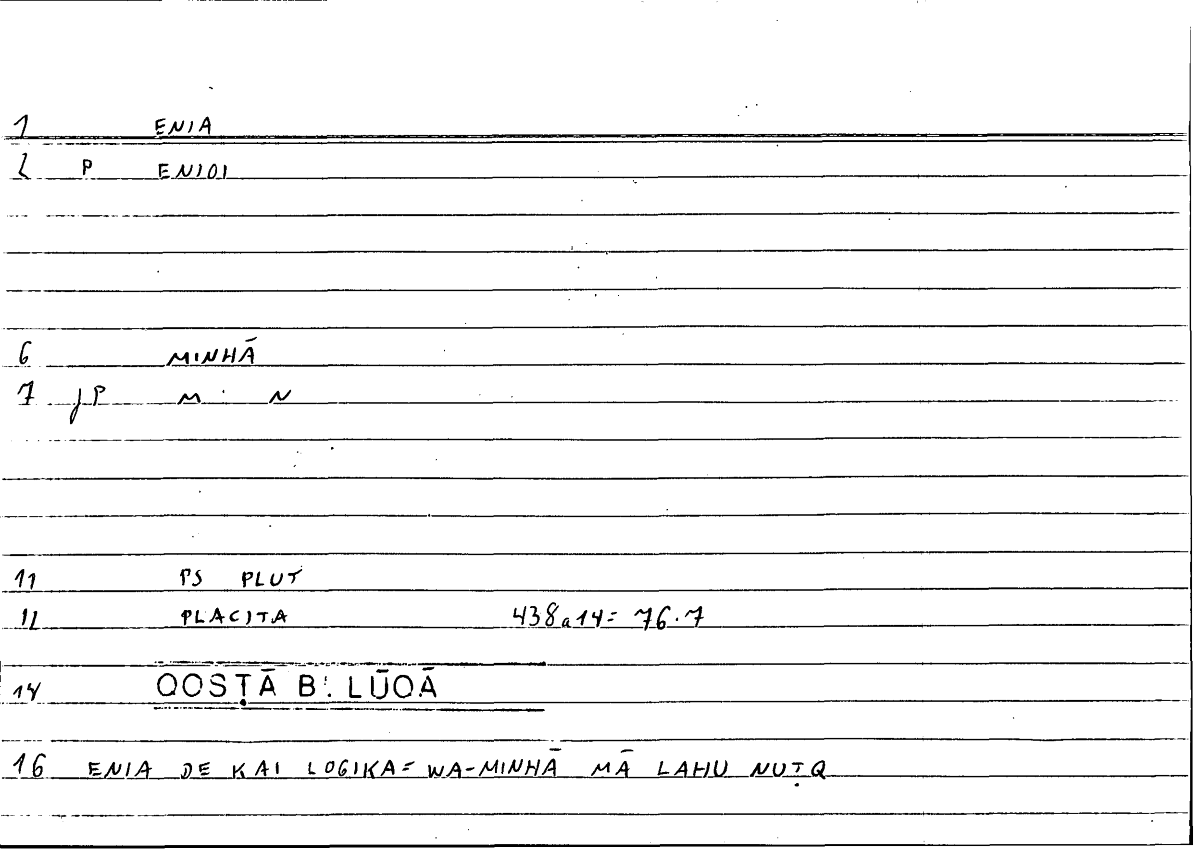 1 ENIA
2 P ENIOI
6 MINHĀ
7 JP M : N
11 PS PLUT
12 PLACITA 438a14= 76.7
14 QOSṬĀ B: LŪQĀ
16 ENIA DE KAI LOGIKA= WA-MINHĀ MĀ LAHU NUṬQ